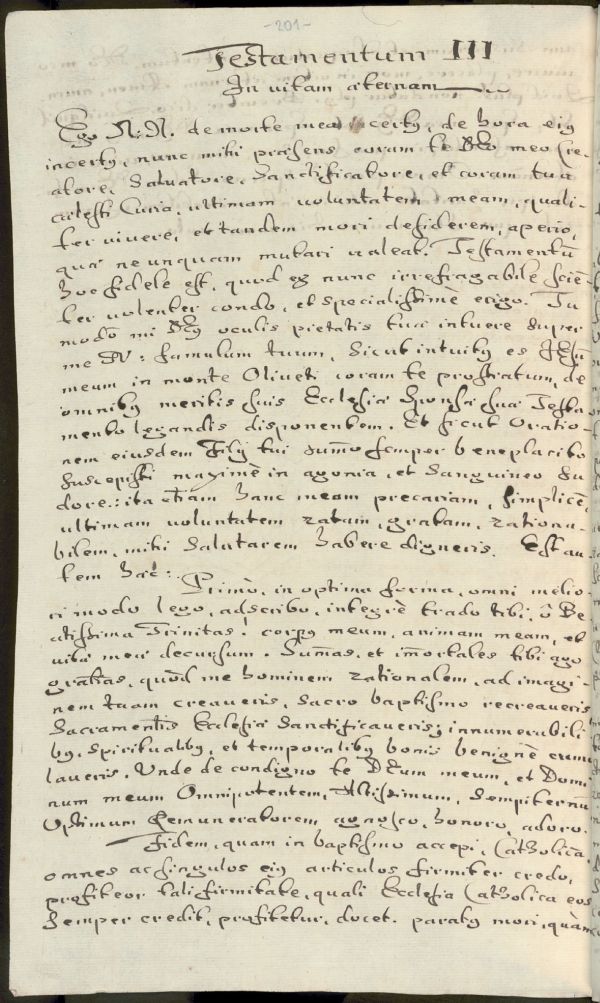 -201-
Testamentum III
In vitam æternam
Ego N: N. de morte mea certus, de hora eius
incertus, nunc mihi præsens coram te DEo meo Cre-
atore, Salvatore, Sanctificatore, et coram tua
cælesti Curia, ultimam voluntatem meam, quali-
ter vivere, et tandem mori desiderem, aperio,
quæ ne unquam mutari valeat. Testamentũ
hoc fidele est, quod ego nunc irrefragabile sciẽ
ter volenter condo, et specialissimè erigo. Tu
modò mi DEus oculis pietatis tuæ intuere super
me N: famulum tuum, Sicut intuitus es JEsũ
meum in monte Oliveti coram te prostratum, de
omnibus meritis suis Ecclesiæ Sponsæ suæ Testa
mento legandis disponentem. Et sicut Oratio-
nem eiusdem Filij tui summo semper beneplacito
suscepisti maximè in agonia, et Sanguineo Su
dore: ita etiam hanc meam precariam, simplicẽ,
ultimam voluntatem ratam, gratam, rationa-
bilem, mihi salutarem habere digneris. Est au
tem hæc:
Primò, in optima forma, omni melio-
ri modo lego, adscribo, integrè trado tibi, ô Be
atissima Trinitas, corpus meum, animam meam, et
vitæ meæ decursum. Sum̃as, et im̃ortales tibi ago
gratias, quòd me hominem rationalem, ad imagi-
nem tuam creaveris, sacro baptismo recreaveris
Sacramentis Ecclesiæ Sanctificaveris; innumerabili
bus, spiritualibus, et temporalibus bonis benignè cumu
laveris. Unde de condigno te DEum meum, et Domi
num meum Omnipotentem, Altissimum, Sempiternũ
Optimum Remuneratorem agnosco, honoro, adoro.
Fidem, quam in baptismo accepi, Catholicã,
omnes ac singulos eius articulos firmiter credo,
profiteor tali firmitate, quali Ecclesia Catholica eos
semper credit, profitetur, docet. paratus mori, quàm